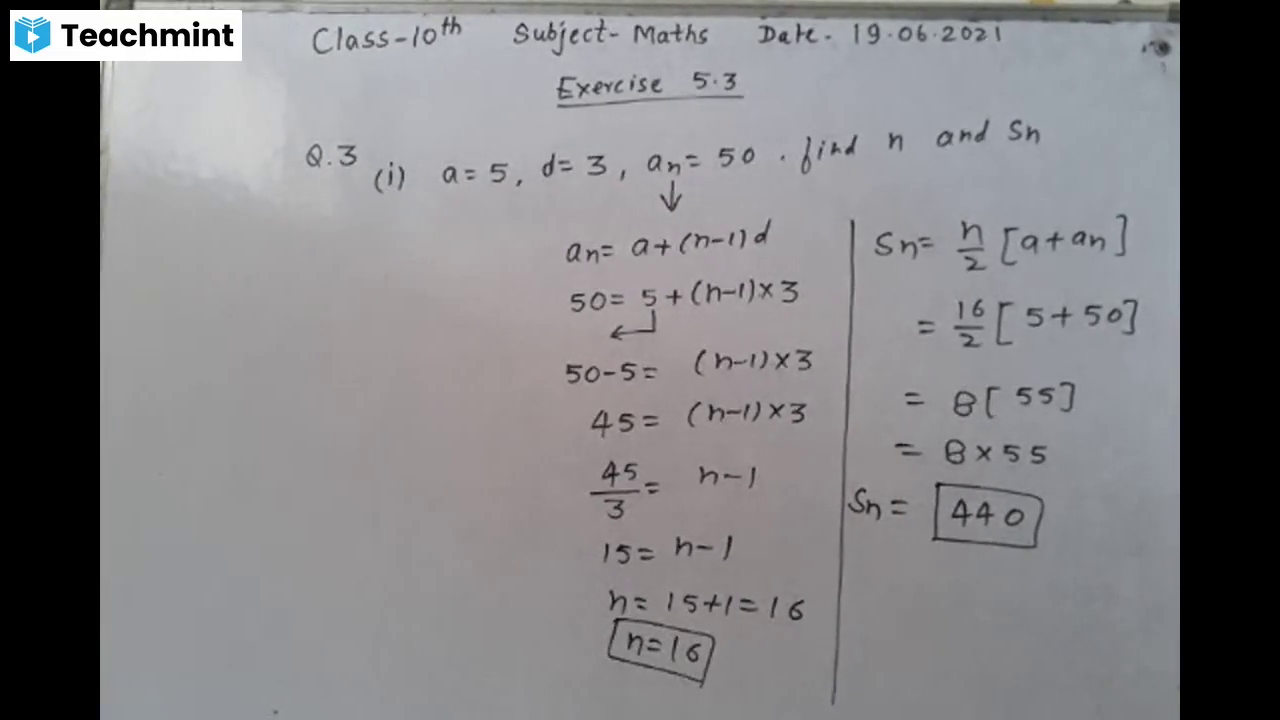 Teachmint
Class-10th Subject- Maths Date. 19.06.2021
Exercise 5.3
Q.3 (i) a=5, d=3, an=50. find n and Sn
↓
an= a+(n-1)d
50= 5+(n-1)×3
50-5= (n-1)×3
45= (n-1)×3
45/3= n-1
15= n-1
n= 15+1=16
n=16
Sn= n/2 [a+an]
= 16/2 [5+50]
= 8[55]
= 8×55
Sn= 440